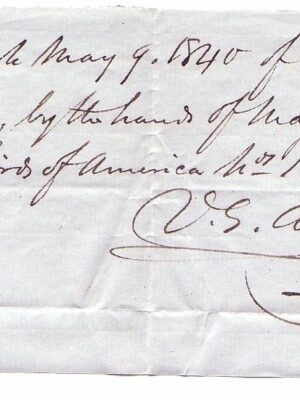 May 9. 1840 of
, by the hands of Ma
irds of America Nos
V. G. A